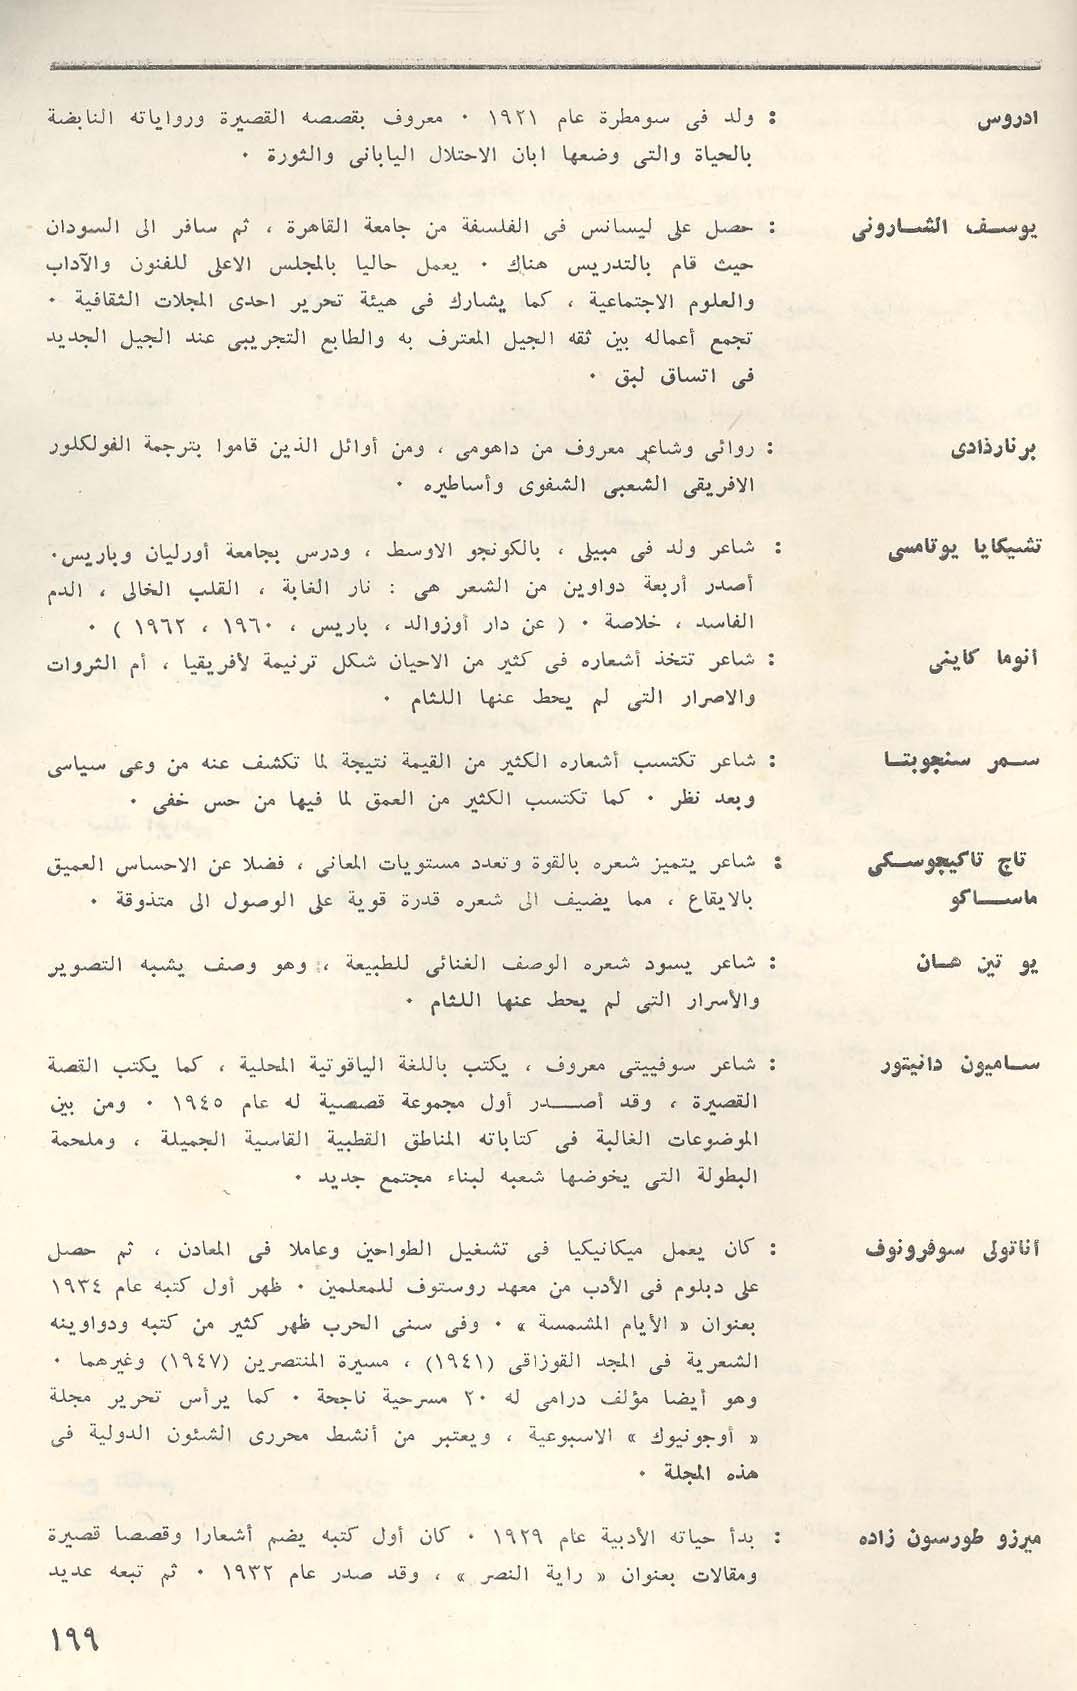 ادروس : ولد فى سومطرة عام ١٩٢١ ٠ معروف بقصصه القصيرة ورواياته النابضة
بالحياة والتى وضعها ابان الاحتلال اليابانى والثورة ٠
يوسـف الشـارونى : حصل على ليسانس فى الفلسفة من جامعة القاهرة ، ثم سافر الى السودان
حيث قام بالتدريس هناك ٠ يعمل حاليا بالمجلس الاعلى للفنون والآداب
والعلوم الاجتماعية ، كما يشارك فى هيئة تحرير احدى المجلات الثقافية ٠
تجمع أعماله بين ثقه الجيل المعترف به والطابع التجريبى عند الجيل الجديد
فى اتساق لبق ٠
برنارذادى : روائى وشاعر معروف من داهومى ، ومن أوائل الذين قاموا بترجمة الفولكلور
الافريقى الشعبى الشفوى وأساطيره ٠
تشيكايا يوتامسى : شاعر ولد فى مبيلى ، بالكونجو الاوسط ، ودرس بجامعة أورليان وباريس٠
أصدر أربعة دواوين من الشعر هى : نار الغابة ، القلب الخالى ، الدم
الفاسد ، خلاصة ٠ ( عن دار أوزوالد ، باريس ، ١٩٦٠ ، ١٩٦٢ ) ٠
أنوما كاينى : شاعر تتخذ أشعاره فى كثير من الاحيان شكل ترنيمة لأفريقيا ، أم الثروات
والاصرار التى لم يحط عنها اللثام ٠
سـمر سنجوبتـا : شاعر تكتسب أشعاره الكثير من القيمة نتيجة لما تكشف عنه من وعى سياسى
وبعد نظر ٠ كما تكتسب الكثير من العمق لما فيها من حس خفى ٠
تاج تاكيجوسـكى : شاعر يتميز شعره بالقوة وتعدد مستويات المعانى ، فضلا عن الاحساس العميق
ماسـاكو بالايقاع ، مما يضيف الى شعره قدرة قوية على الوصول الى متذوقة ٠
يو تين هـان : شاعر يسود شعره الوصف الغنائى للطبيعة ، وهو وصف يشبه التصوير
والأسرار التى لم يحط عنها اللثام ٠
سـاميون دانيتور : شاعر سوفييتى معروف ، يكتب باللغة الياقوتية المحلية ، كما يكتب القصة
القصيرة ، وقد أصـدر أول مجموعة قصصية له عام ١٩٤٥ ٠ ومن بين
الموضوعات الغالبة فى كتاباته المناطق القطبية القاسية الجميلة ، وملحمة
البطولة التى يخوضها شعبه لبناء مجتمع جديد ٠
أناتولى سوفرونوف : كان يعمل ميكانيكيا فى تشغيل الطواحين وعاملا فى المعادن ، ثم حصل
على دبلوم فى الأدب من معهد روستوف للمعلمين ٠ ظهر أول كتبه عام ١٩٣٤
بعنوان « الأيام المشمسة » ٠ وفى سنى الحرب ظهر كثير من كتبه ودواوينه
الشعرية فى المجد القوزاقى (١٩٤١) ، مسيرة المنتصرين (١٩٤٧) وغيرهما ٠
وهو أيضا مؤلف درامى له ٢٠ مسرحية ناجحة ٠ كما يرأس تحرير مجلة
« أوجونيوك » الاسبوعية ، ويعتبر من أنشط محررى الشئون الدولية فى
هذه المجلة ٠
ميرزو طورسون زاده : بدأ حياته الأدبية عام ١٩٢٩ ٠ كان أول كتبه يضم أشعارا وقصصا قصيرة
ومقالات بعنوان « راية النصر » ، وقد صدر عام ١٩٣٢ ٠ ثم تبعه عديد
١٩٩